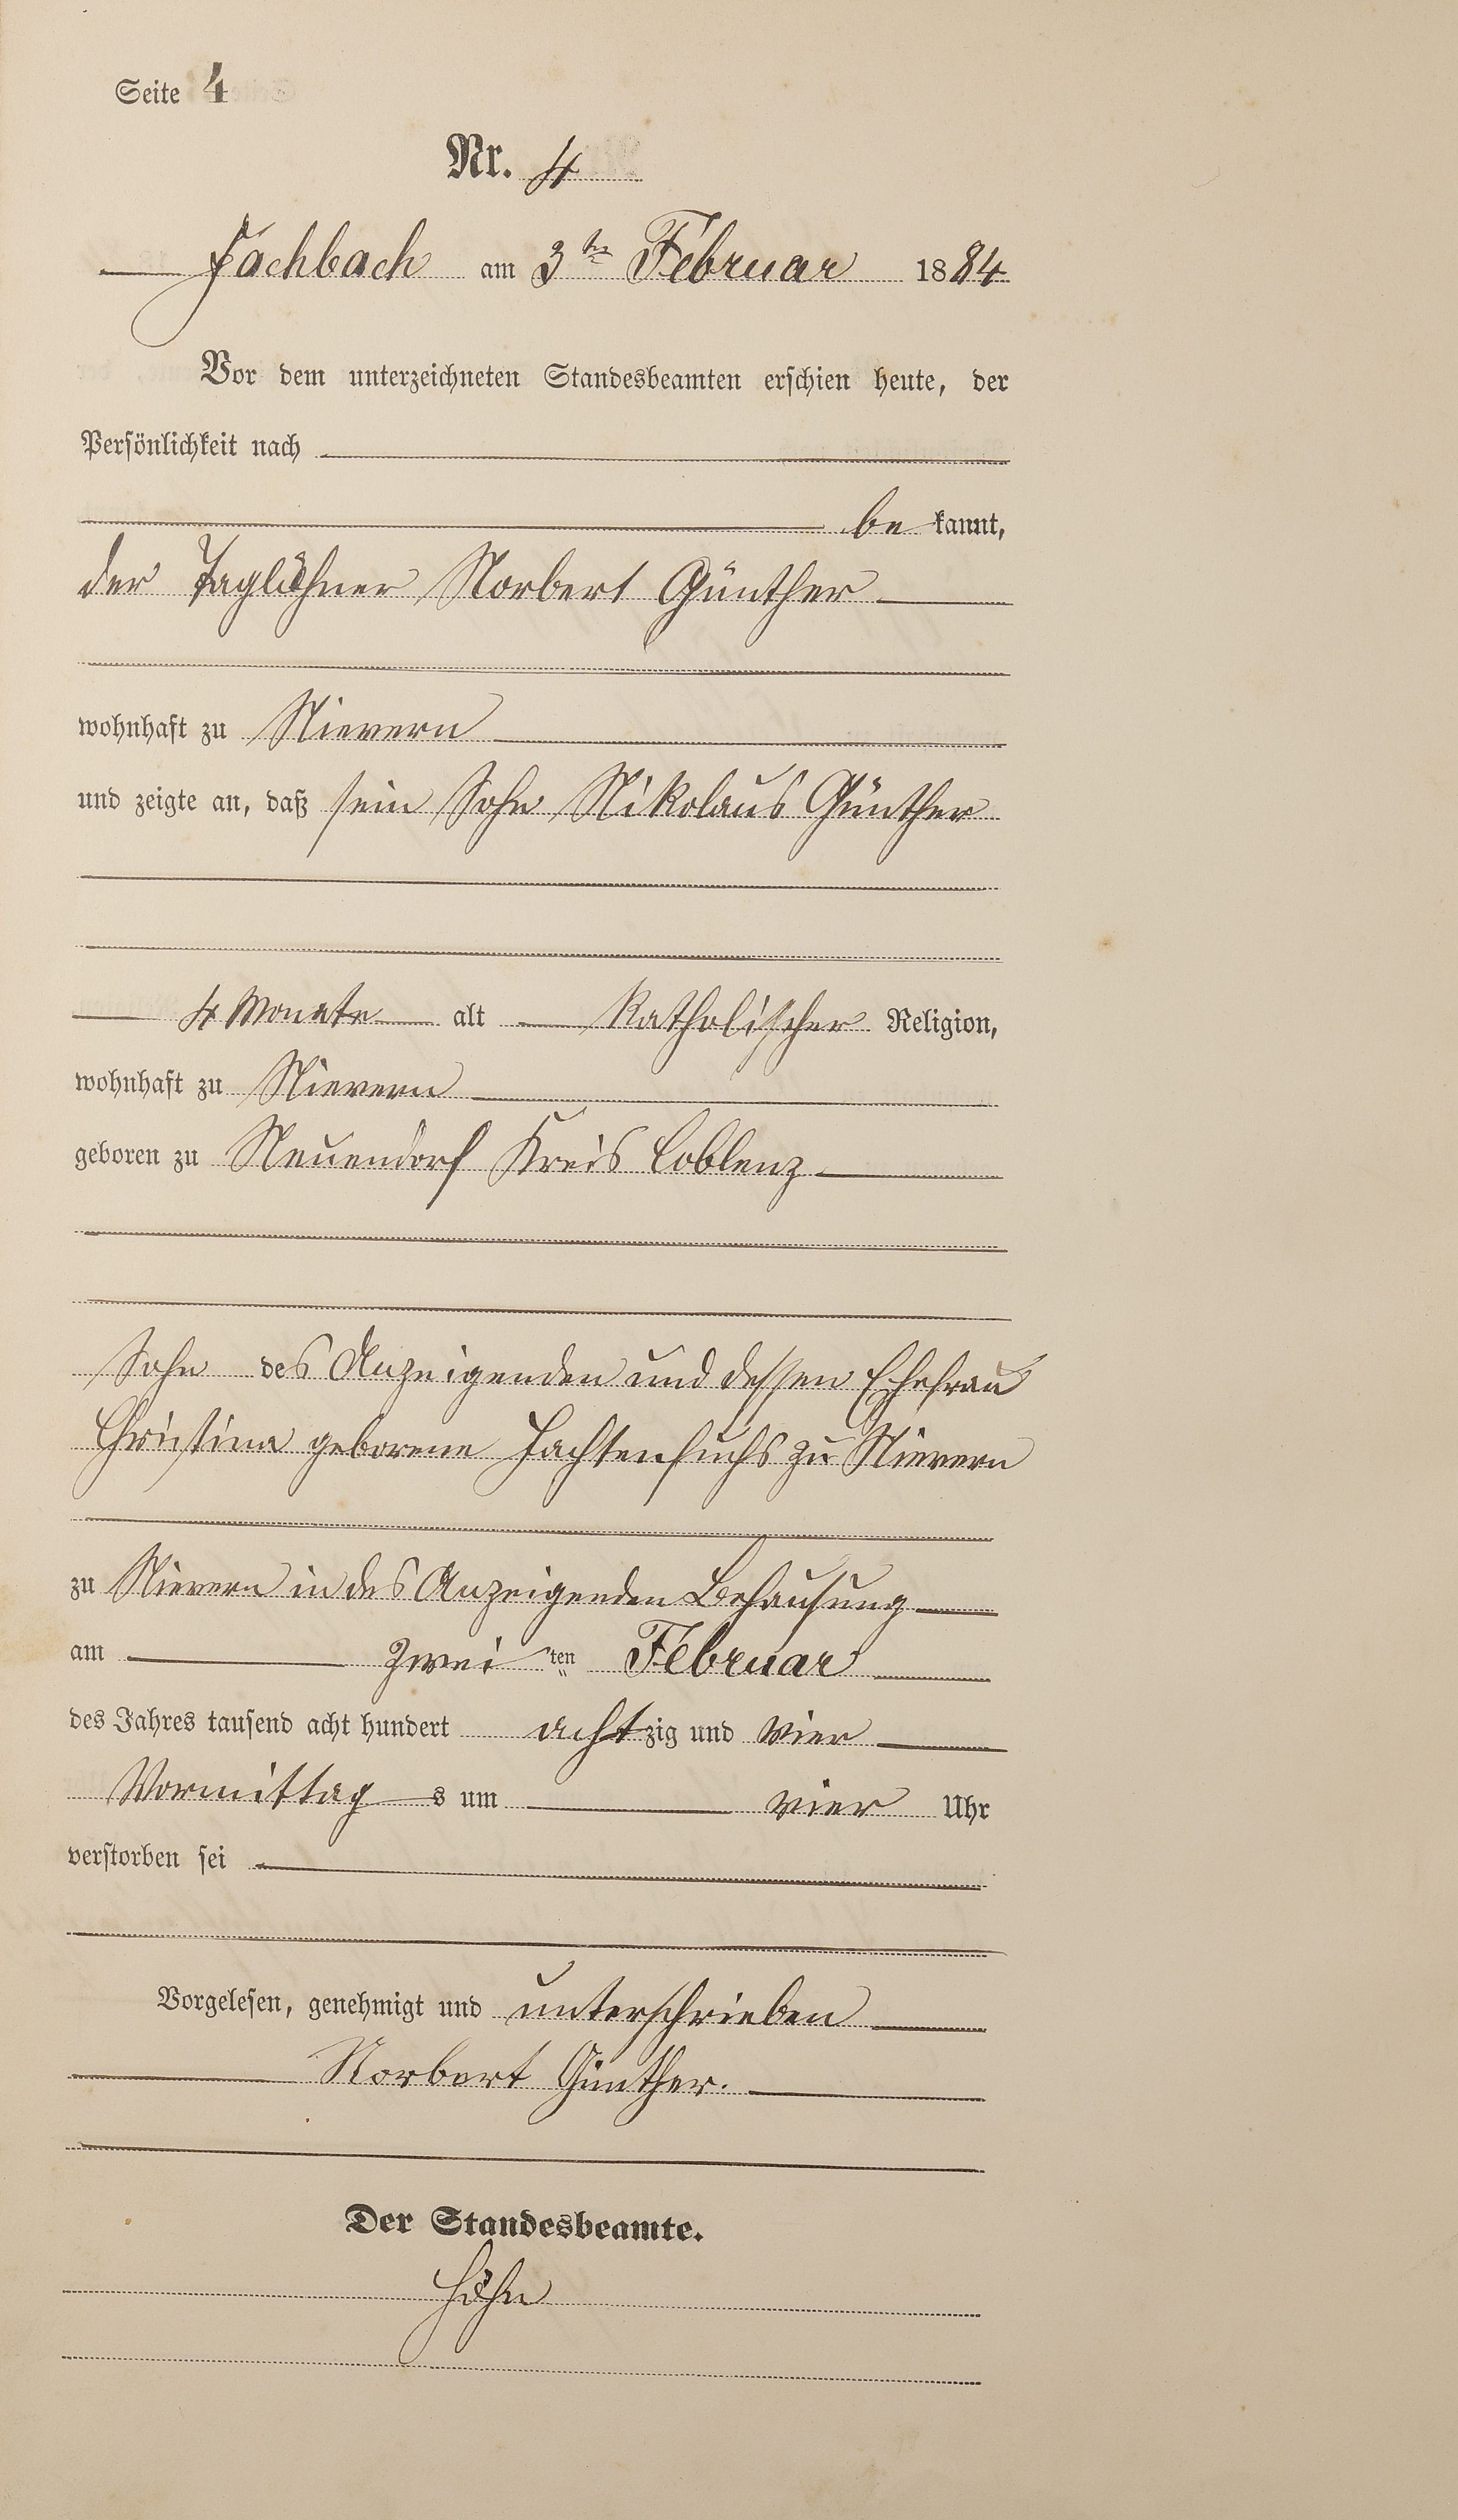 Seite 4
Nr. 4
Fachbach am 3ten Februar 1884
Vor dem unterzeichneten Standesbeamten erschien heute, der
Persönlichkeit nach
be kannt,
der Taglöhner Norbert Günther
wohnhaft zu Nievern
und zeigte an, daß sein Sohn Nikolaus Günther
4 Monate alt Katholischer Religion,
wohnhaft zu Nievern
geboren zu Neuendorf Kreis Coblenz
Sohn des Anzeigenden und dessen Ehefrau
Christina geborene Hachtenfuchs zu Nievern
zu Nievern in des Anzeigenden Behausung
am zwei ten Februar
des Jahres tausend acht hundert acht zig und vier
Vormittag s um vier Uhr
verstorben sei
Vorgelesen, genehmigt und unterschrieben
Norbert Günther.
Der Standesbeamte.
Höhn